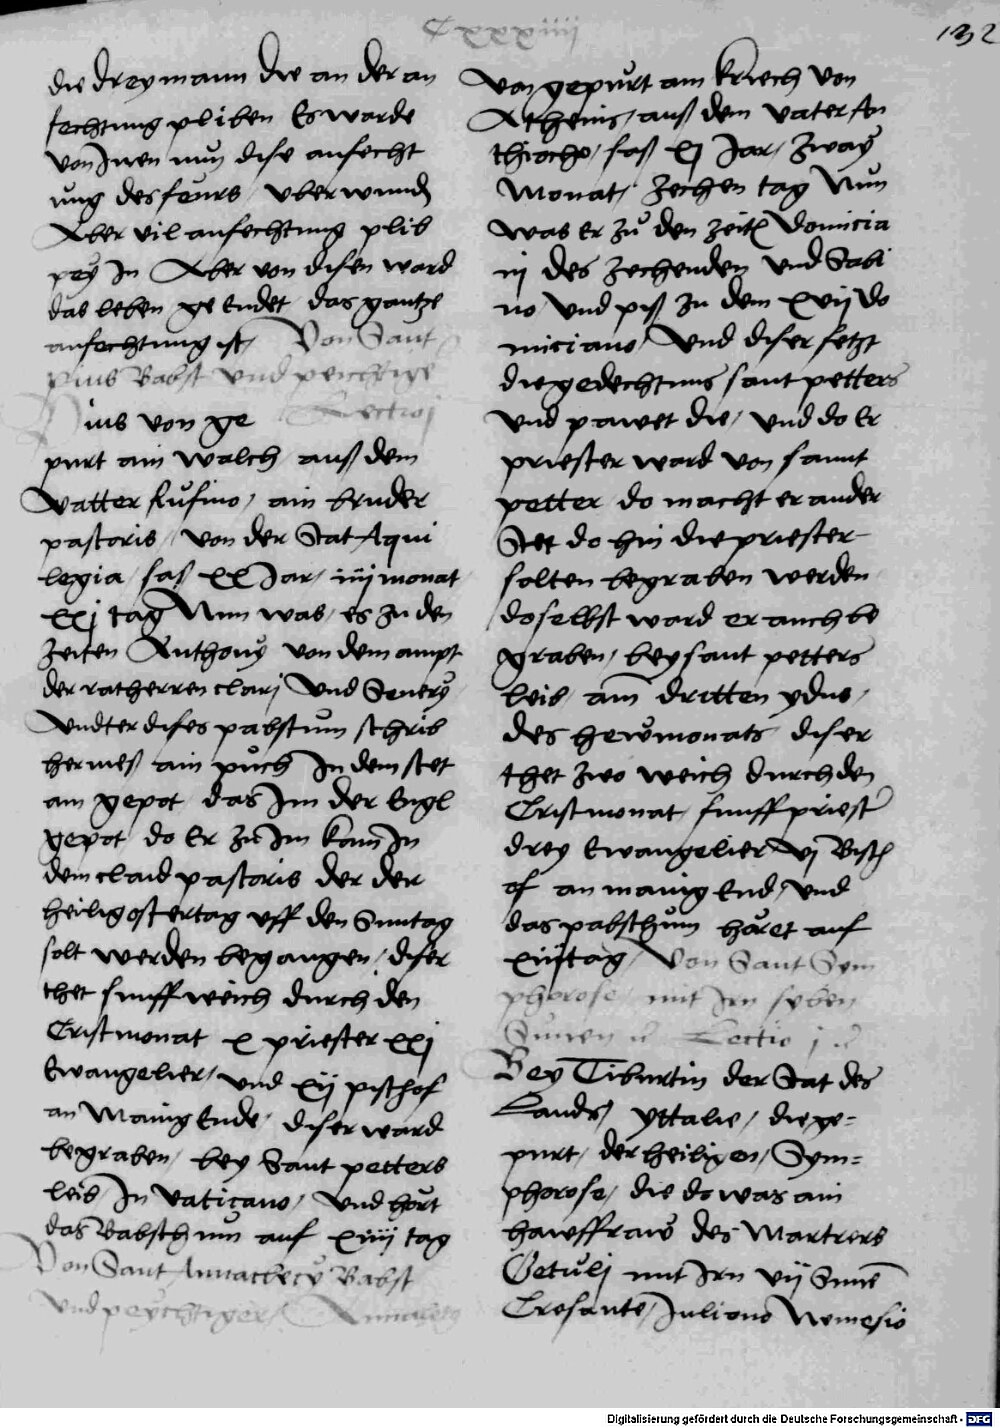 Cxxxiiii
132
die drey mann die an der an
fechtung pliben Es warde
von Inen nun dise anfecht
ung des feurs / uberwunden
Aber vil anfechtung plib
pey In Aber von disen ward
das leben ge Endet das gantze
anfechtung ist / Von Sant
Pius Babst und peichtige
Pius von ge Lectio j
purt ain walch auß dem
Vatter Rufino / ain bruder
pastoris / von der Stat Aqui
legia / saß xx Jar / iiij monat
xxj tag Nun was / es zu den
Zeiten Anthony von dem ampt
der ratherren clarj Und Severy
Undter dises pabstum schrib
hermeß ain puoch In dem stet
am gepot das Im der Engl
gepot do Er zu Im kam In
dem claid pastoris der der
heilig ostertag uff den Suntag
solt werden begangen / diser
thet funff weich durch den
Cristmonat x priester xxj
Ewangelier / und xij pischof
an Manig Ende / diser ward
begraben / bey Sant petters
leib / In Vaticano / Und hort
das Babsthum auf xiiij tag
Von Sant Annaclety Babst
und peychtiger
von gepurt ain Kriech von
Athenis / auß dem vater An
thiocho / saß xj Jar / Zway
Monat / Zechen tag Nun
was Er zu den Zeiten Domicia
nj des Zechenden und Sabi
no / und piß zu dem xvij Do
miciano / Und diser setzt
die gedechtnus sant petters
und pawet die / und do Er
priester ward von sannt
petter do macht er ander
Stet do hin die priester
solten begraben werden
doselbst ward er auch be
graben / bey sant petters
leib / am dritten ydus /
des hewmonats diser
thet zwo weich durch den
Cristmonat / funff priester
drey Ewangelier vj Bisch
of an manig End / und
das pabsthum höret auf
xiij tag / Von Sant Sym
phorose / mit Irn syben
Sunen Lectio j
Bey Tiburtin der Stat des
Lands / Yttalie / die ge=
purt / der heiligen / Sym=
phorose / die do was ain
hawsffraw des Martrers
Getulj mit Irn vij Sunen
Cresante / Juliano Nemesio
Digitalisierung gefördert durch die Deutsche Forschungsgemeinschaft - DFG